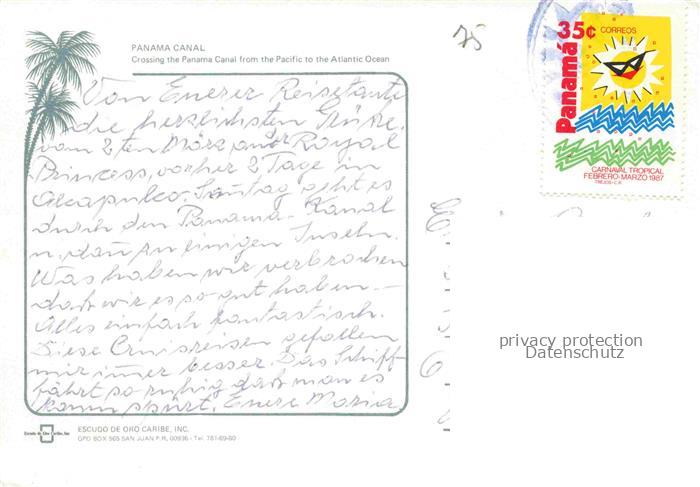 75
35¢
CORREOS
Panamá
CARNAVAL TROPICAL
FEBRERO-MARZO 1987
TREJOS-C.R.
PANAMA CANAL
Crossing the Panama Canal from the Pacific to the Atlantic Ocean
Von Euerer Reisetante
die herzlichsten Grüße,
vom 2ten März auf der Royal
Princess, vorher 2 Tage in
Acapulco. Sontag geht es
durch den Panama-Kanal
u. dan zu einigen Inseln.
Was haben wir verbrochen
daß wir es so gut haben.-
Alles einfach fantastisch.
Diese Cruisreisen gefallen
mir imer besser. Das Schiff
fährt so ruhig daß man es
kaum spürt. Euere Maria
privacy protection
Datenschutz
Escudo de Oro Caribe, Inc
ESCUDO DE ORO CARIBE, INC.
GPO BOX 565 SAN JUAN P.R. 00936 - Tel. 781-69-60